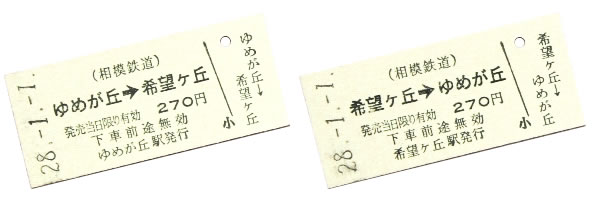 28.-1.-1.
(相模鉄道)
ゆめが丘➔希望ケ丘
270円
発売当日限り有効
下車前途無効
ゆめが丘駅発行
小
ゆめが丘→希望ケ丘
28.-1.-1.
(相模鉄道)
希望ケ丘➔ゆめが丘
270円
発売当日限り有効
下車前途無効
希望ケ丘駅発行
小
希望ケ丘→ゆめが丘